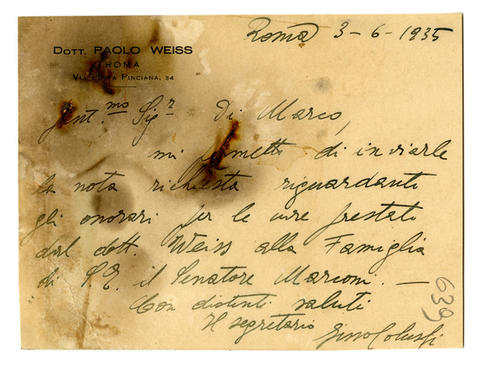 Dott. PAOLO WEISS
ROMA
Pinciana, 34
Roma 3-6-1935
Gent.mo Sigr Di Marco,
mi permetto di inviarle
la nota richiesta riguardante
gli onorari per le cure prestate
dal dott. Weiss alla Famiglia
di S.E. il Senatore Marconi. —
Con distinti saluti
Il segretario
Gino
639